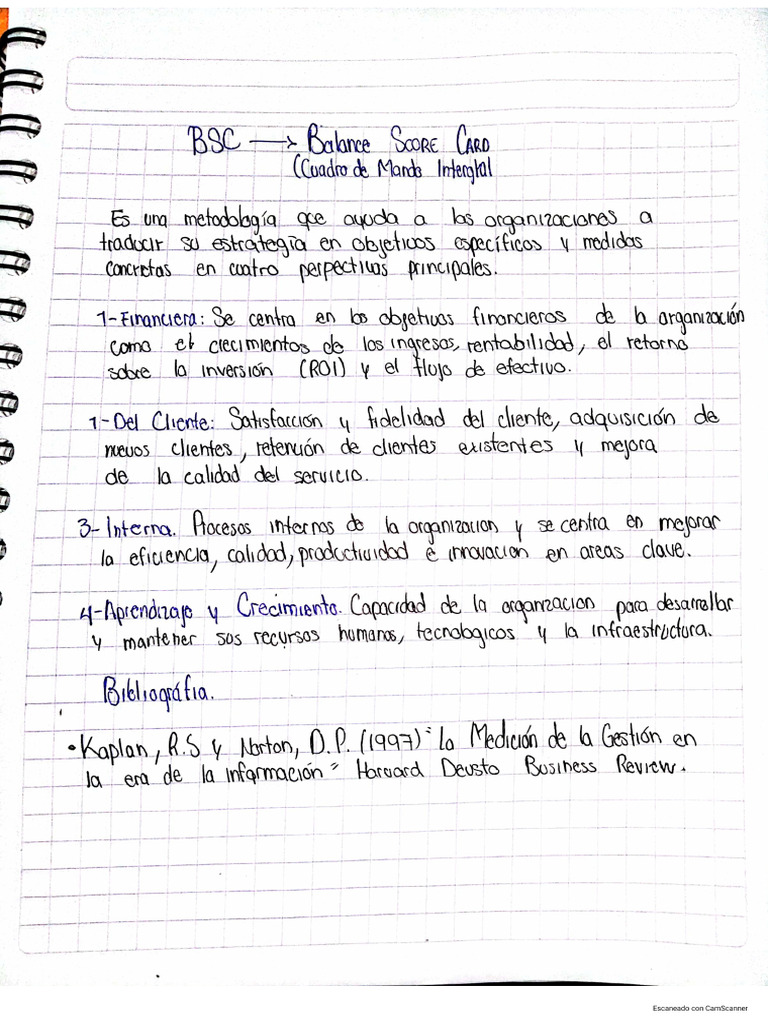 BSC → Balance Score Card
(Cuadro de Mando Intergtal
Es una metodología que ayuda a las organizaciones a
traducir su estrategia en objetivos específicos y medidas
concretas en cuatro perpectivas principales.
1-Financiera: Se centra en los objetivos financieros de la organización
como el crecimientos de los ingresos, rentabilidad, el retorno
sobre la inversión (ROI) y el flujo de efectivo.
1-Del Cliente: Satisfacción y fidelidad del cliente, adquisición de
nuevos clientes, retención de clientes existentes y mejora
de la calidad del servicio.
3-Interna. Procesos internos de la organizacion y se centra en mejorar
la eficiencia, calidad, productividad e innovacion en areas clave.
4-Aprendizaje y Crecimiento. Capacidad de la organizacion para desarrollar
y mantener sus recursos humanos, tecnologicos y la infraestructura.
Bibliográfia.
• Kaplan, R.S y Norton, D.P. (1997) "la Medición de la Gestión en
la era de la información" Harvard Deusto Business Review.
Escaneado con CamScanner